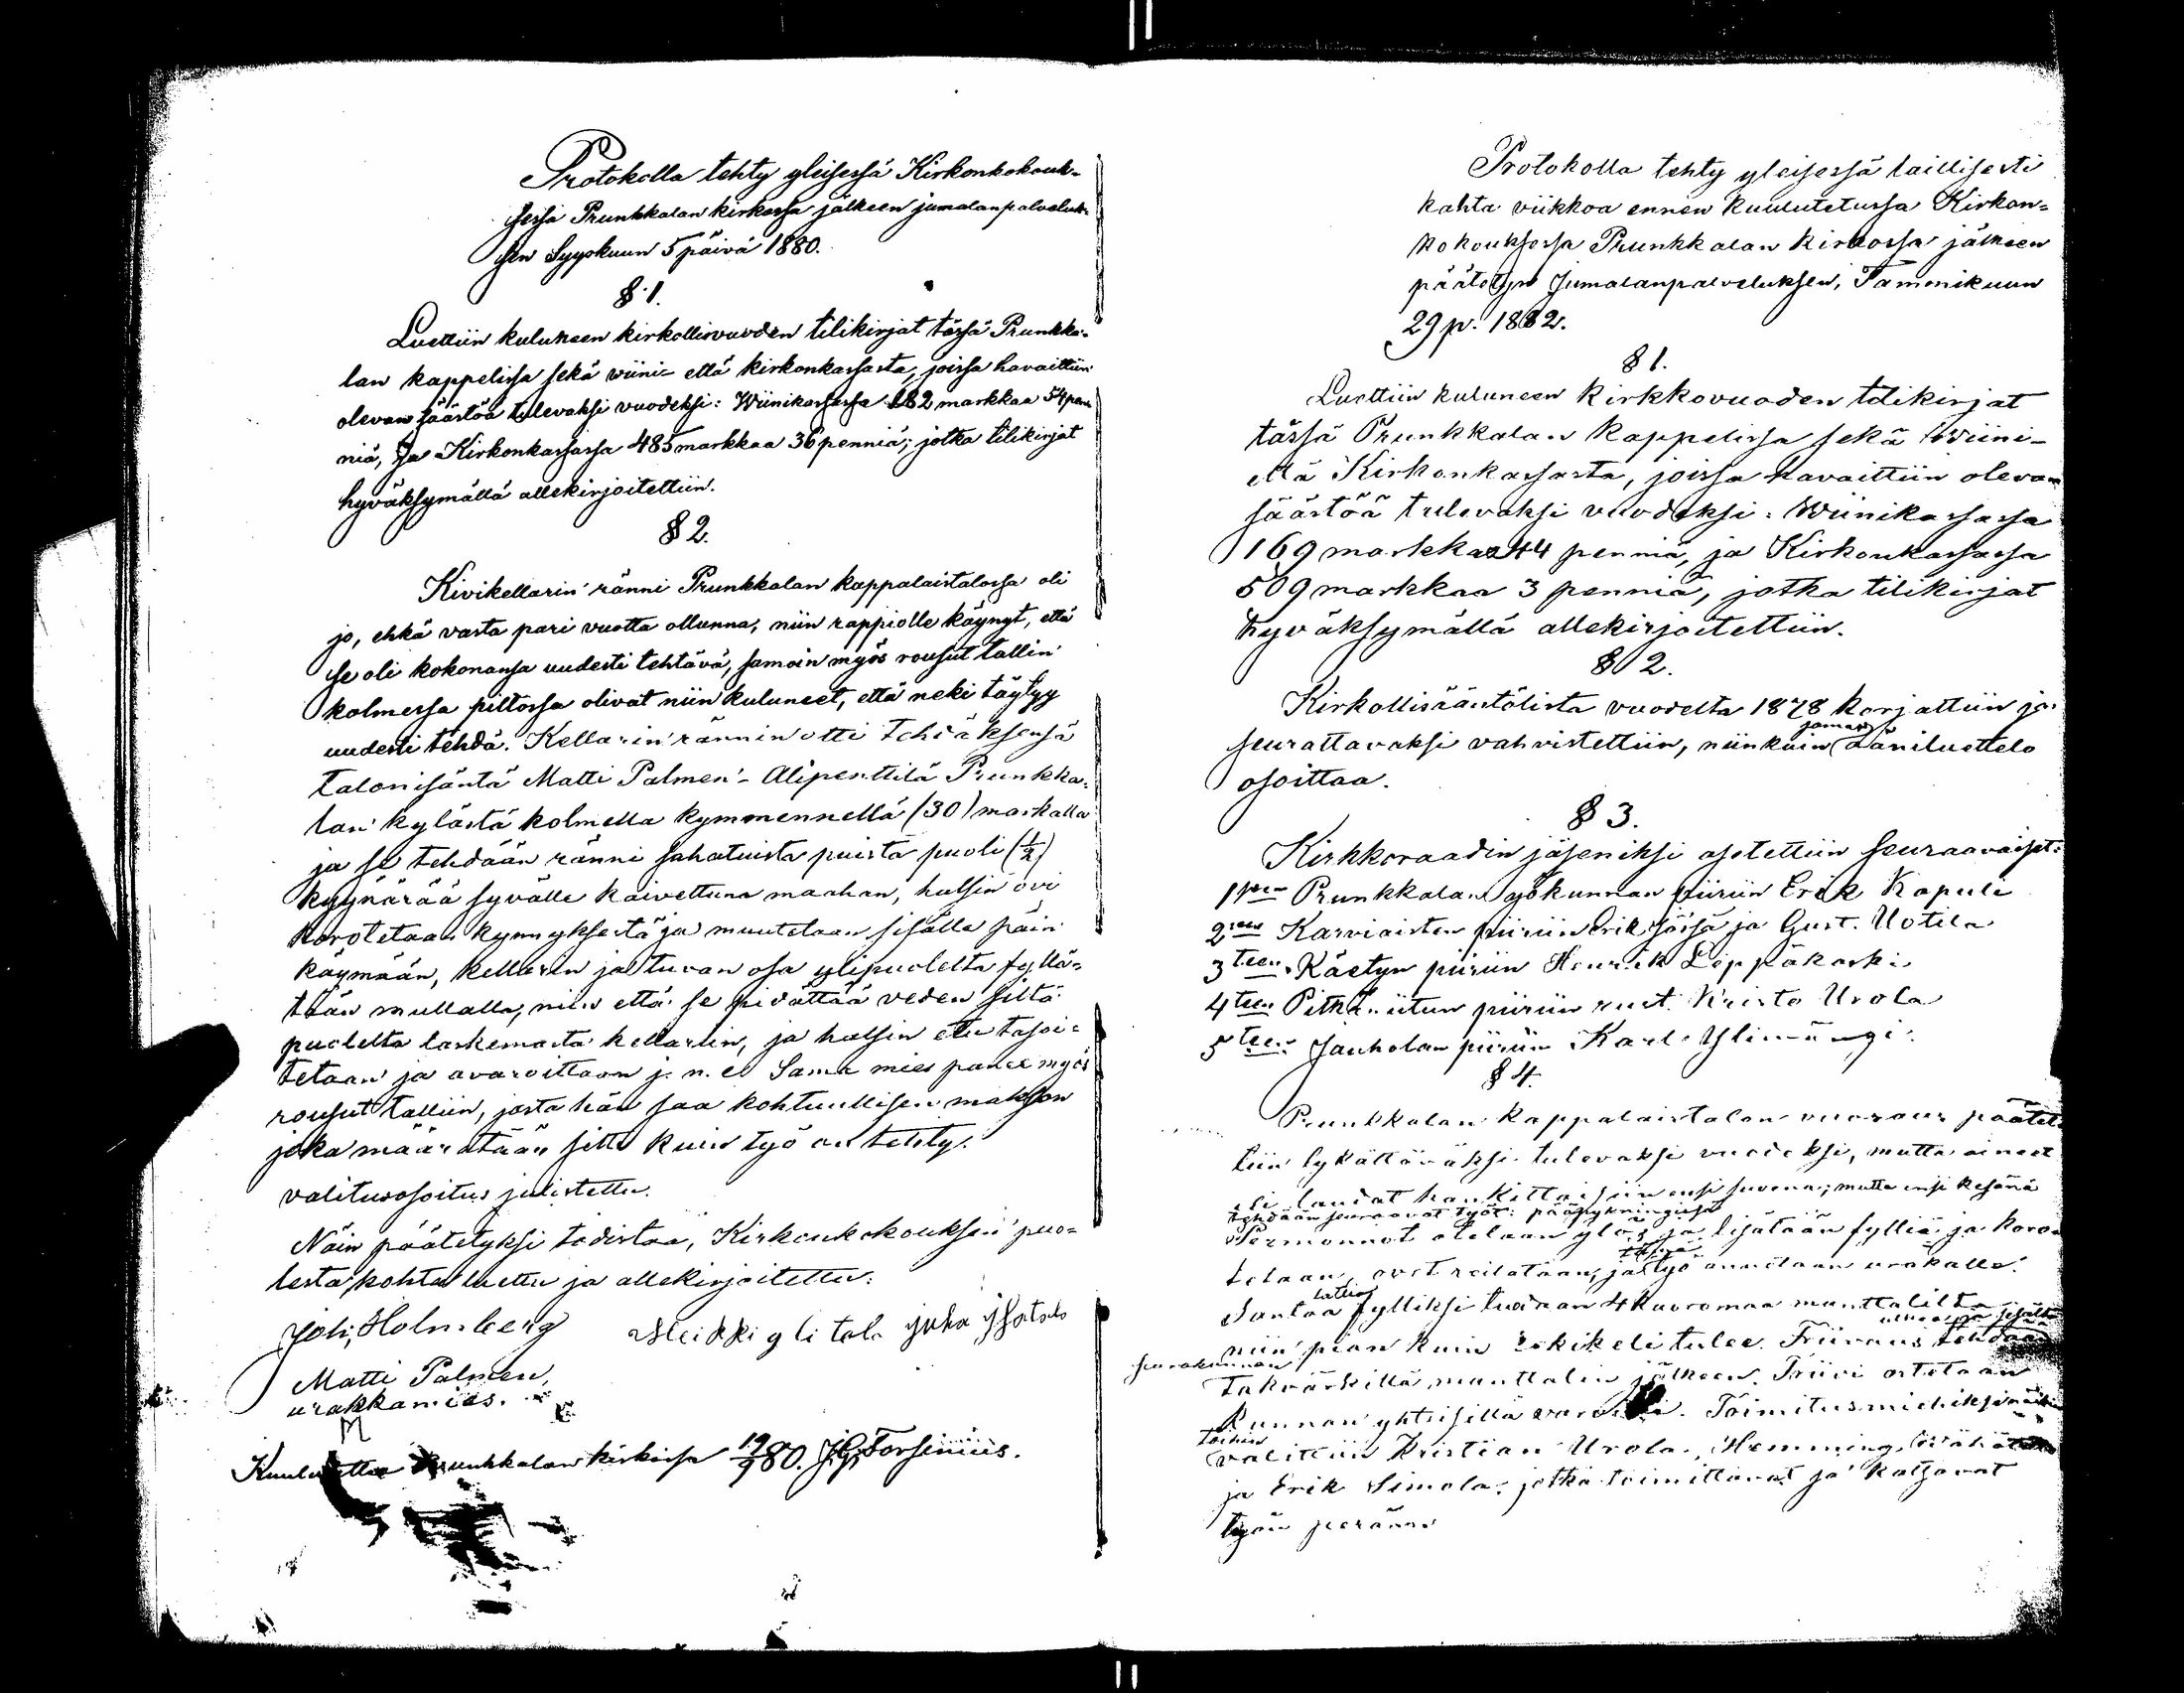 Protokolla tehty yleisessä Kirkonkokouk-
sessa Prunkkalan kirkossa jälkeen jumalanpalveluk-
sen Syyskuun 5 päivä 1880.
§ 1.
Luettiin kuluneen kirkollisvuoden tilikirjat tässä Prunkka-
lan kappelissa sekä viini- että kirkonkassasta, joissa havaittiin
olevan säästöä tulevaksi vuodeksi: Wiinikassassa 182 markkaa 54 pen-
niä, ja Kirkonkassassa 485 markkaa 36 penniä; jotka tilikirjat
hyväksymällä allekirjoitettiin.
§ 2.
Kivikellarin ränni Prunkkalan kappalaistalossa oli
jo, ehkä vasta pari vuotta ollunna, niin rappiolle käynyt, että
se oli kokonansa uudesti tehtävä, samoin myös rousut tallin
kolmessa piltossa olivat niin kuluneet, että neki täytyy
uudesti tehdä. Kellarin rännin otti tehdäksensä
talonisäntä Matti Palmen - Alipenttilä Prunkka-
lan kylästä kolmella kymmennellä (30) markalla
ja se tehdään ränni sahatuista puista puoli (1/2)
kyynärää syvälle kaivettuna maahan, halsin ovi
korotetaan kynnyksestä ja muutetaan sisälle päin
käymään, kellarin ja tuvan osa ylipuolelta fyllä-
tään mullalla, niin että se pidättää veden siltä
puolelta laskemasta kellariin, ja halsin etu tasoi-
tetaan ja avaroittaan j. n. e. Sama mies panee myös
rousut talliin, josta hän saa kohtuullisen makson
joka määrätään sitte kuin työ on tehty.
valitusosoitus julistettu.
Näin päätetyksi todistaa, Kirkonkokouksen puo-
lesta, kohta luettu ja allekirjoitettu:
Joh. Holmberg Heikki yli tala juha
Matti Palmen,
urakkamies.
Kuulutettu Prunkkalan kirkossa 19/9 80. J. G. Forsenius.
Protokolla tehty yleisessä laillisesti
kahta viikkoa ennen kuulutetussa Kirkon-
kokouksessa Prunkkalan kirkossa jälkeen
päätetyn Jumalanpalveluksen, Tammikuun
29 p. 1882.
§ 1.
Luettiin kuluneen kirkkovuoden tilikirjat
tässä Prunkkalan kappelissa sekä Wiini-
että Kirkonkassasta, joissa havaittiin olevan
säästöä tulevaksi vuodeksi: Wiinikassassa
169 markkaa 44 penniä, ja Kirkonkassassa
509 markkaa 3 penniä, jotka tilikirjat
hyväksymällä allekirjoitettiin.
§ 2.
Kirkollisääntölista vuodelta 1878 korjattiin ja
seurattavaksi vahvistettiin, niinkuin sama ääniluettelo
osoittaa.
§ 3.
Kirkkoraadin jäseniksi asetettiin seuraavaiset:
1sen Prunkkalan jokunnan piiriin Erik Kapuli
2sen Karviaisten piiriin Erik Jässä ja Gust. Uotila
3teen Käetyn piiriin Henrik Leppäkoski
4teen Pitkäniitun piiriin rust. Kristo Urola
5teen Jauholan piiriin Karl Ylimängi.
§ 4.
Prunkkalan kappalaistalon vuoraus päätet-
tiin lykättäväksi tulevaksi vuodeksi, mutta aineet
eli laudat hankittaisiin ensi suvena; mutta ensi kesänä
tehdään seuraavat työt: pääpykningissä
Permannot otetaan ylös, ja lisätään fylliä ja koro-
tetaan, ovet reilataan, ja työ annetaan urakalle.
Santaa fylliksi tuodaan 4 kuoromaa manttalilta
niin pian kuin rekikeli tulee. Friiraus tehdään
seurakunnan
takvärkillä, manttalin jälkeen. Triivi ostetaan
kunnan yhteisillä varoilla. Toimitusmiehiksi näihin
töihin
valittiin Kristian Urola, Hemming
ja Erik Simola, jotka toimittavat ja katsovat
työn perään.